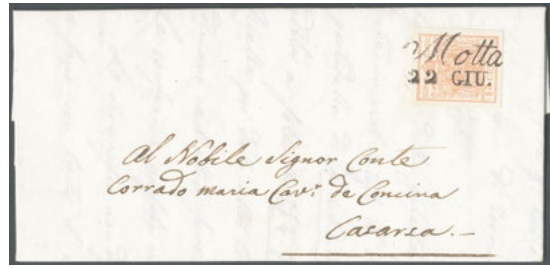 Motta
22 GIU.
Al Nobile Signor Conte
Corrado maria Cav.r de Concina
Casarsa.-